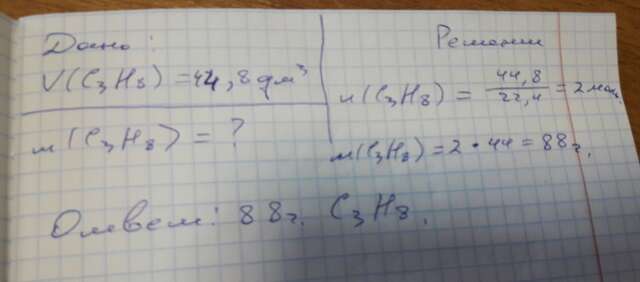 Дано:
V(C₃H₈) = 44,8 дм³
m(C₃H₈) = ?
Решение
n(C₃H₈) = 44,8/22,4 = 2 моль.
m(C₃H₈) = 2 · 44 = 88 г.
Ответ: 88 г. C₃H₈.